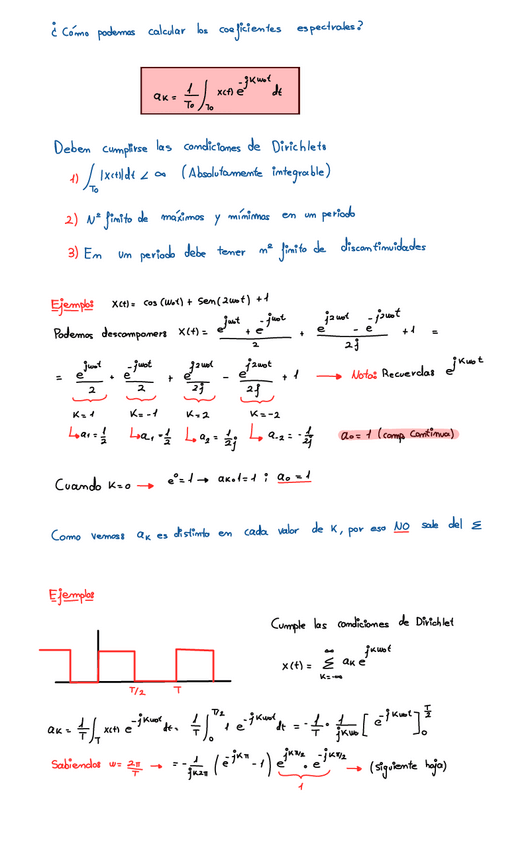 ¿Cómo podemos calcular los coeficientes espectrales?
aκ = 1/T₀ ∫T₀ x(t) e^-jκω₀t dt
Deben cumplirse las condiciones de Dirichlets
1) ∫T₀ |x(t)|dt < ∞ (Absolutamente integrable)
2) Nº finito de máximos y mínimos en un periodo
3) En un periodo debe tener nº finito de discontinuidades
Ejemplo: x(t) = cos(ω₀t) + sen(2ω₀t) + 1
Podemos descomponers x(t) = (e^jω₀t + e^-jω₀t)/2 + (e^j2ω₀t - e^-j2ω₀t)/2j + 1 =
= e^jω₀t/2 + e^-jω₀t/2 + e^j2ω₀t/2j - e^j2ω₀t/2j + 1 → Nota: Recuerdas e^jκω₀t
κ=1 κ=-1 κ=2 κ=-2
↳a₁=1/2 ↳a₋₁=1/2 ↳a₂=1/2j ↳a₋₂=-1/2j a₀=1 (comp. Continua)
Cuando κ=0 → e⁰=1 → aκ·1=1 ; a₀=1
Como vemos: aκ es distinto en cada valor de κ, por eso NO sale del Σ
Ejemplos
Cumple las condiciones de Dirichlet
x(t) = Σ κ=-∞ ∞ aκ e^jκω₀t
T/2 T
aκ = 1/T ∫T x(t) e^-jκω₀t dt = 1/T ∫₀^T/2 1 e^-jκω₀t dt = -1/T · 1/jκω₀ [e^-jκω₀t]₀^T/2
Sabiendos ω = 2π/T → = -1/jκ2π (e^-jκπ - 1) e^jκπ/2 · e^-jκπ/2 → (siguiente hoja)
1